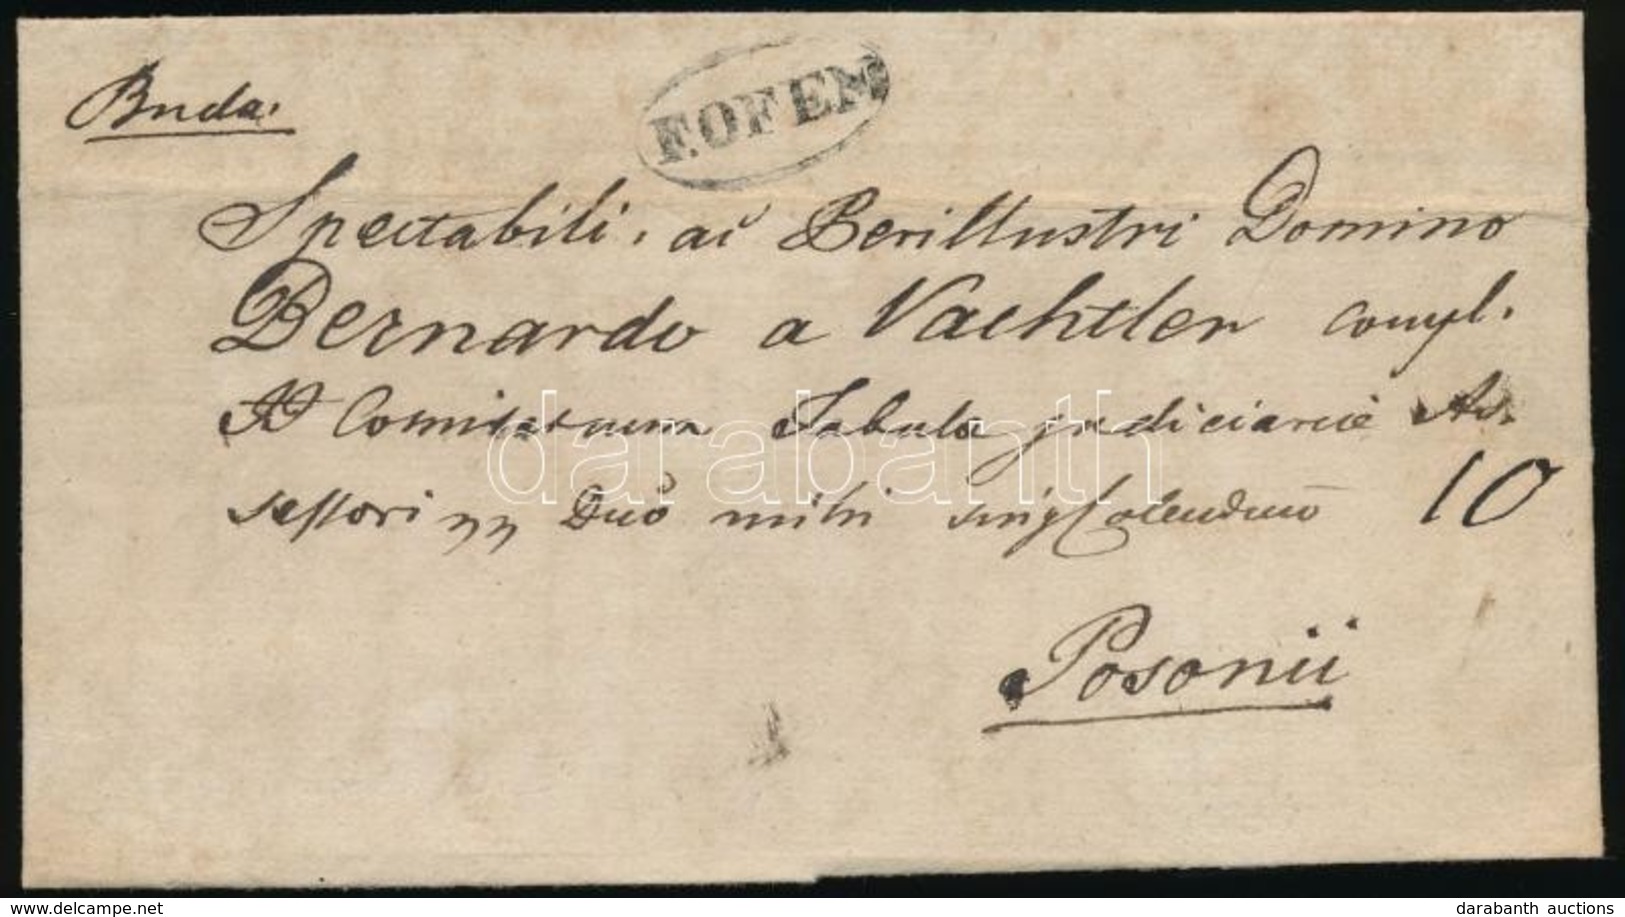 Buda.
F.OFEN
Spectabili, ac Perillustri Domino
Bernardo a Vachtler compl.
Comitatuum Tabula judiciariae As-
sessori Dno mihi singl Colendmo 10
Posonii
darabanth
www.delcampe.net
darabanth auctions